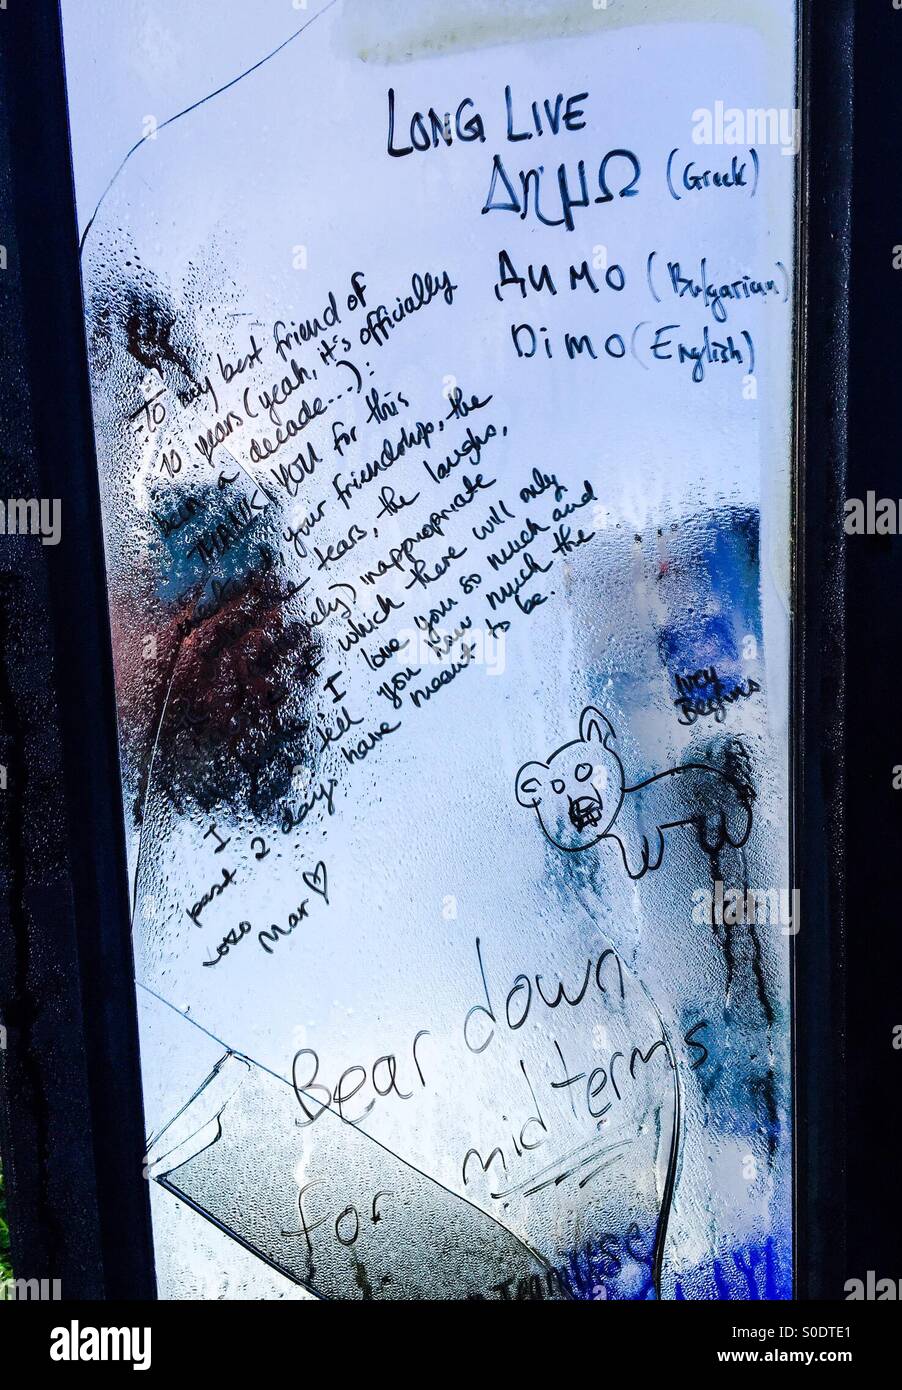 LONG LIVE
ΔημΩ (Greek)
Димо (Bulgarian)
Dimo (English)
To my best friend of
10 years (yeah, it's officially
been a decade...):
THANK YOU for this
your friendship, the
tears, the laughs,
inappropriate
which there will only
I love you so much and
tell you how much the
past 2 days have meant to be.
I
xoxo
Mar ♡
Ivey
Begins
Bear down
for midterms
alamy
Image ID: S0DTE1
www.alamy.com